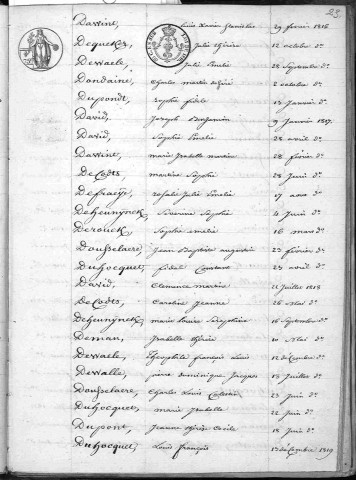 23
Dassint, Louis Xavier Stanislas 29 fevrier 1816
Dequeker, Julie Thérèse 12 octobre do
Dewaele, Julie Amelie 28 Septembre do
Dondaine, Charles martin 2 octobre do
Dupondt, Sophie fidele 13 Janvier do
David, Joseph Benjamin 9 Janvier 1817.
David, Sophie Amelie 28 avril do
Dassint, marie Isabelle 28 février do
DeCodts, martine Sophie 28 Juin do
Defraeye, rosalie Julie Amelie 17 aout do
Deheunynck, Sophie 4 Juin do
Derouck, Sophie amelie 16 mars do
Dousselaere, Jean Baptiste augustin 23 février do
Duhocquet, fidel Constant 23 avril do
David, Clemence martine 21 Juillet 1818
DeCodts, Caroline Jeanne 26 Mai do
Deheunynck, marie Louise Seraphine 16 Septembre do
Deman, Isabelle thérèse 10 Mai do
Dewaele, Théophile françois Louis 12 décembre do
Dewalle, pierre dominique Jacques 13 Juillet do
Dousselaere, Charles Louis Celestin 23 Juin do
Duhocquet, marie Isabelle 22 Juin do
Dupont, Jeanne thérèse Cecile 18 Juin do
Duhocquet, Louis françois 13 décembre 1819